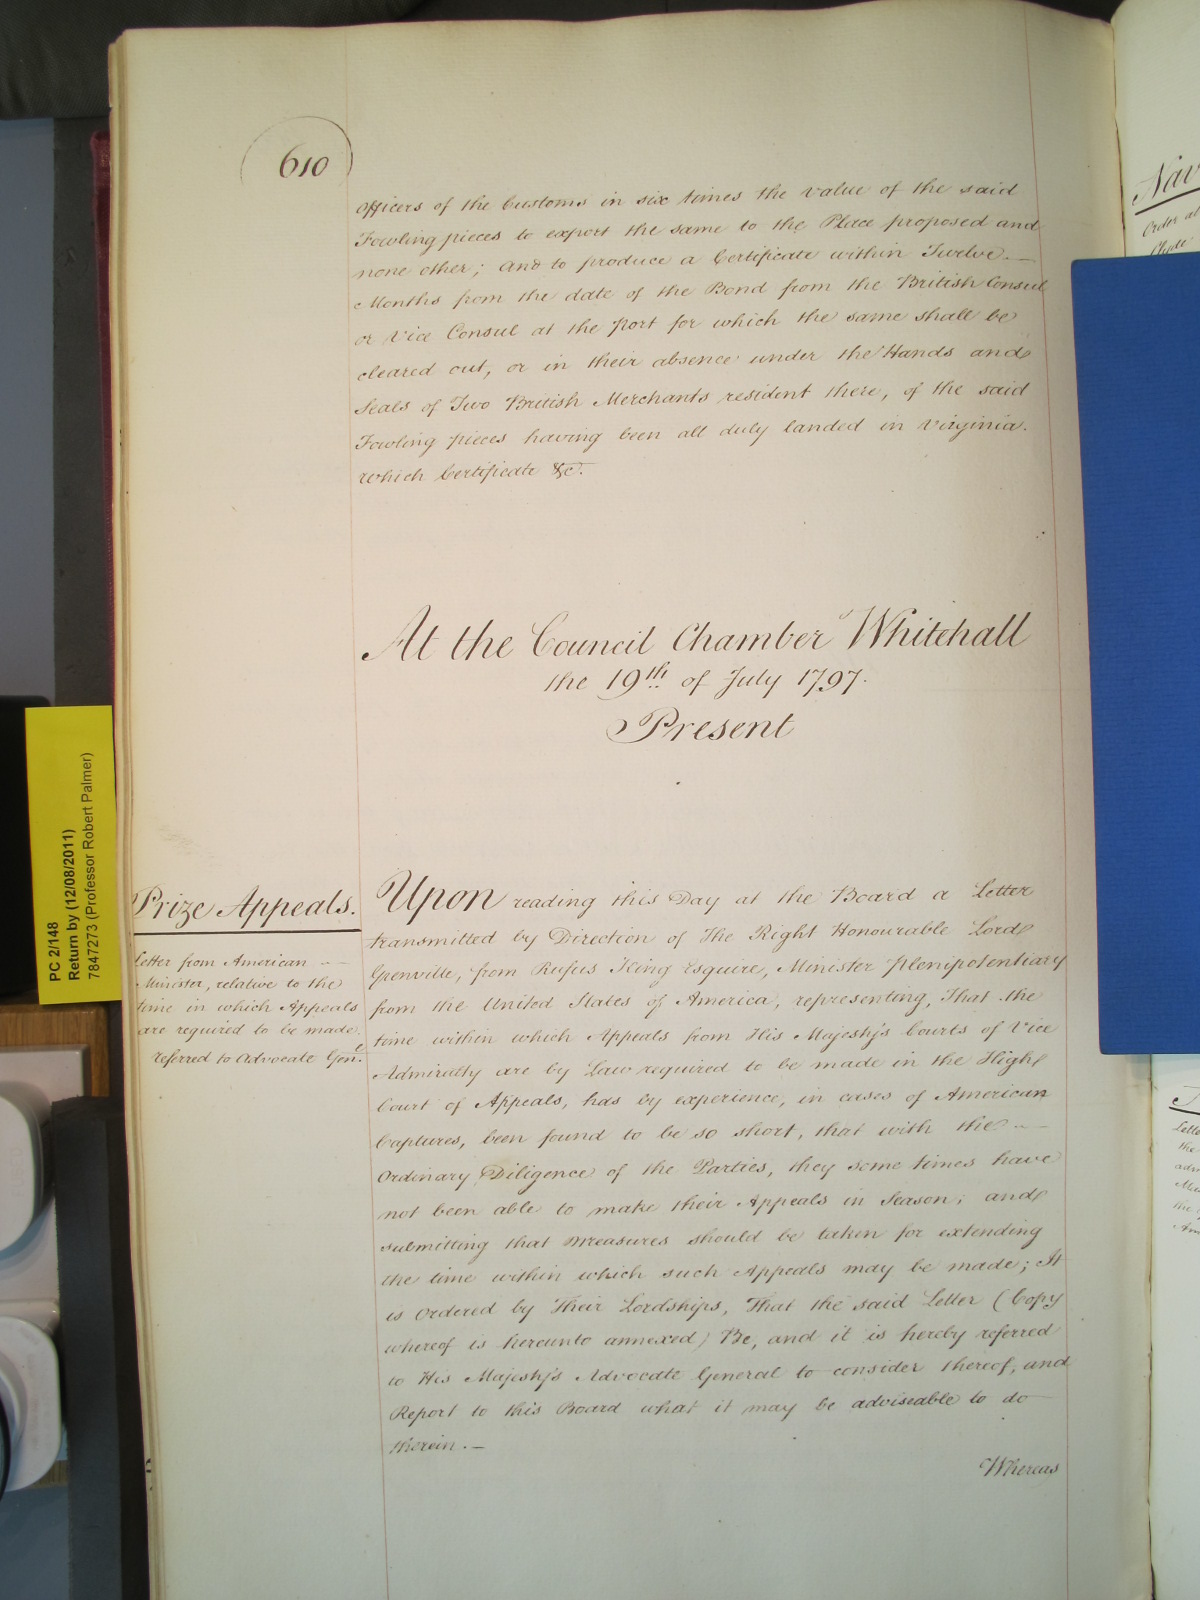 610
Officers of the Customs in six times the value of the said
Fowling pieces to export the same to the Place proposed and
none other; And to produce a Certificate within Twelve. —
Months from the date of the Bond from the British Consul
or Vice Consul at the port for which the same shall be
cleared out, or in their absence under the Hands and
Seals of Two British Merchants resident there, of the said
Fowling pieces having been all duly landed in Virginia.
which Certificate &c.
At the Council Chamber Whitehall
the 19th of July 1797.
Present
Prize Appeals.
Letter from American - -
Minister, relative to the
time in which Appeals
are required to be made.
referred to Advocate Genl.
Upon reading this Day at the Board a Letter
transmitted by Direction of The Right Honourable Lord
Grenville, from Rufus King Esquire, Minister Plenipotentiary
from the United States of America, representing, That the
time within which Appeals from His Majesty's Courts of Vice
Admiralty are by Law required to be made in the High
Court of Appeals, has by experience, in cases of American
Captures, been found to be so short, that with the - —
Ordinary Diligence of the Parties, they some times have
not been able to make their Appeals in Season; and
submitting that Measures should be taken for extending
the time within which such Appeals may be made; It
is Ordered by Their Lordships, That the said Letter (Copy
whereof is hereunto annexed) Be, and it is hereby referred
to His Majesty's Advocate General to consider thereof, and
Report to this Board what it may be adviseable to do
therein. —
Whereas
PC 2/148
Return by (12/08/2011)
7847273 (Professor Robert Palmer)
Nav
Order al
Clyde
Lette
the
adm
the